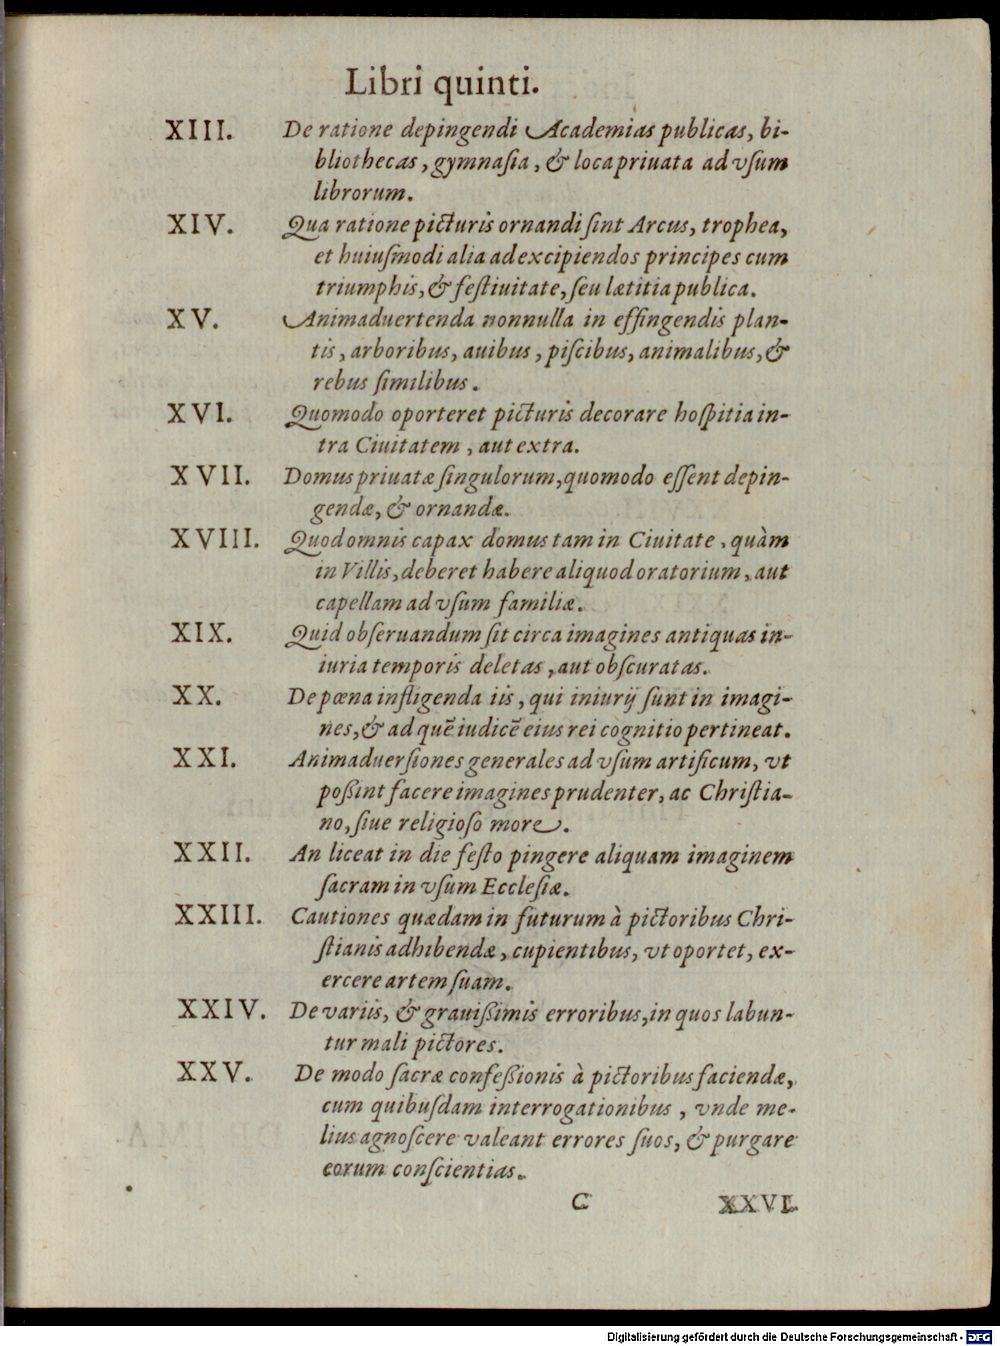 Libri quinti.
XIII. De ratione depingendi Academias publicas, bi-
bliothecas, gymnaſia, & loca priuata ad vſum
librorum.
XIV. Qua ratione picturis ornandi ſint Arcus, trophea,
et huiuſmodi alia ad excipiendos principes cum
triumphis, & feſtiuitate, ſeu lætitia publica.
XV. Animaduertenda nonnulla in effingendis plan-
tis, arboribus, auibus, piſcibus, animalibus, &
rebus ſimilibus.
XVI. Quomodo oporteret picturis decorare hoſpitia in-
tra Ciuitatem, aut extra.
XVII. Domus priuatæ ſingulorum, quomodo eſſent depin-
gendæ, & ornandæ.
XVIII. Quod omnis capax domus tam in Ciuitate, quàm
in Villis, deberet habere aliquod oratorium, aut
capellam ad vſum familiæ.
XIX. Quid obſeruandum ſit circa imagines antiquas in-
iuria temporis deletas, aut obſcuratas.
XX. De pœna infligenda iis, qui iniurij ſunt in imagi-
nes, & ad quẽ iudicẽ eius rei cognitio pertineat.
XXI. Animaduerſiones generales ad vſum artificum, vt
poßint facere imagines prudenter, ac Chriſtia-
no, ſiue religioſo more.
XXII. An liceat in die feſto pingere aliquam imaginem
ſacram in vſum Eccleſiæ.
XXIII. Cautiones quædam in futurum à pictoribus Chri-
ſtianis adhibendæ, cupientibus, vt oportet, ex-
ercere artem ſuam.
XXIV. De variis, & grauißimis erroribus, in quos labun-
tur mali pictores.
XXV. De modo ſacræ confeßionis à pictoribus faciendæ,
cum quibuſdam interrogationibus, vnde me-
lius agnoſcere valeant errores ſuos, & purgare
eorum conſcientias.
C XXVI.
Digitalisierung gefördert durch die Deutsche Forschungsgemeinschaft - DFG